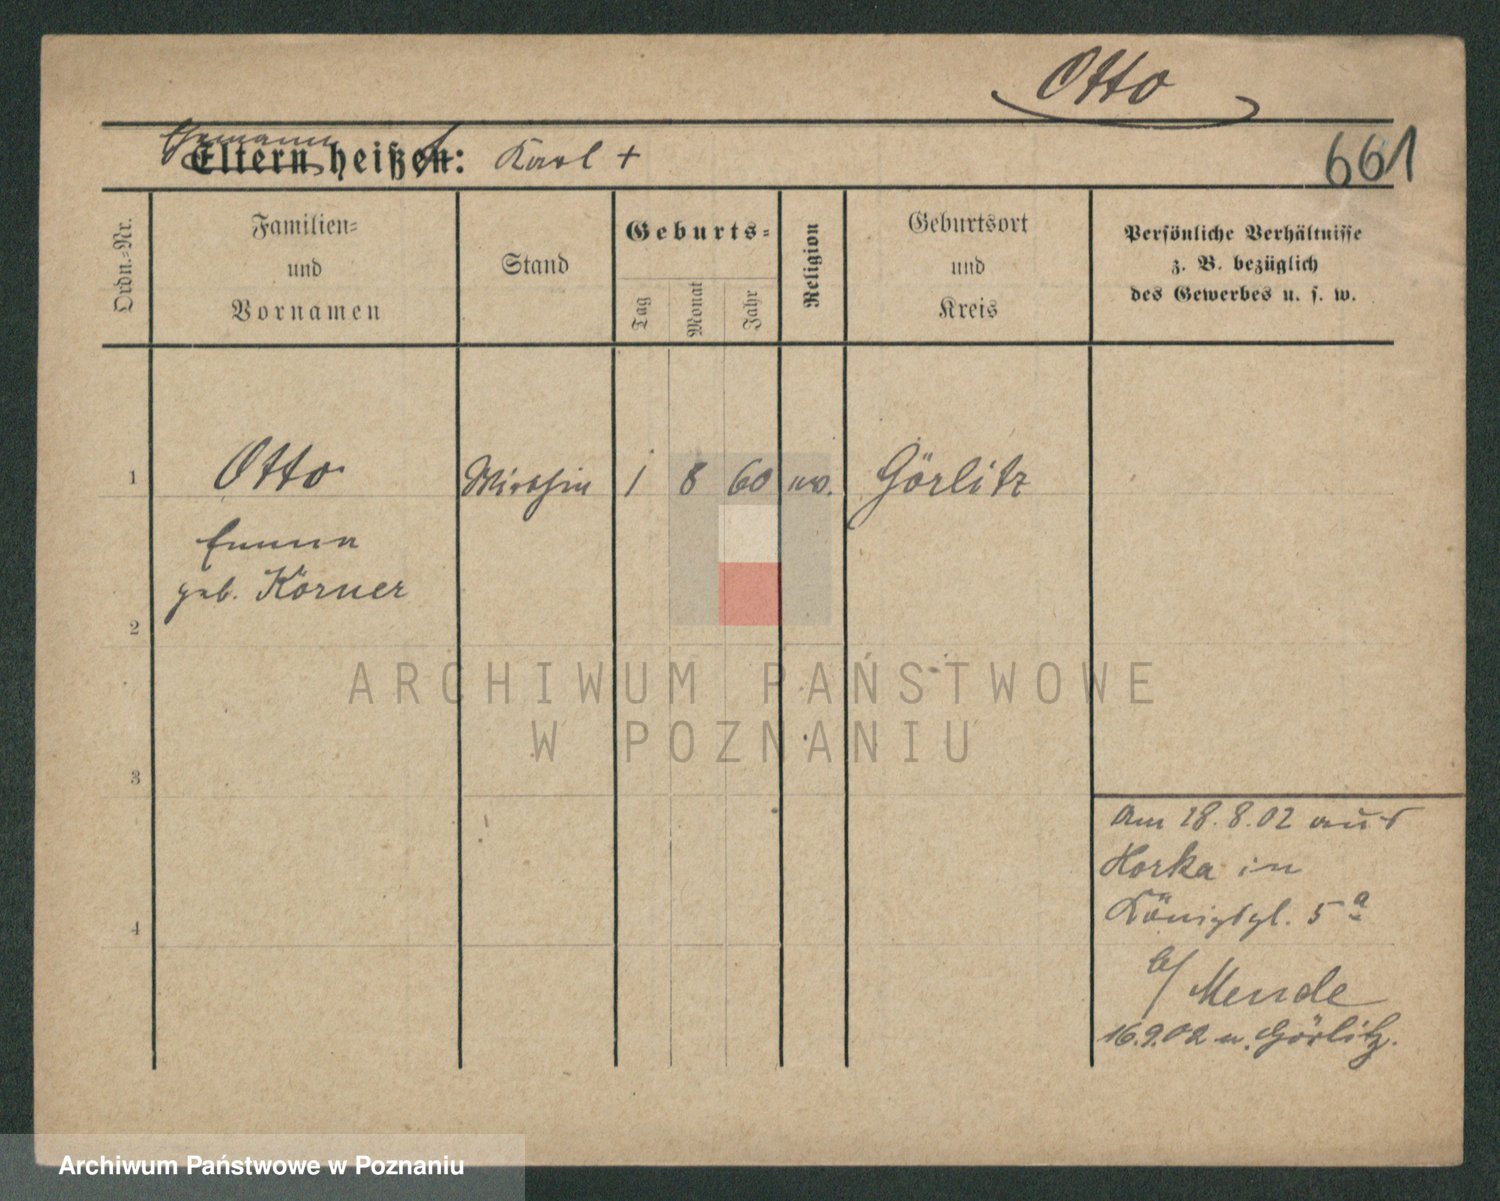 Otto
Ehemann
Eltern heißen: Karl +
661
Ordn.-Nr.
Familien-
und
Vornamen
Stand
Geburts-
Tag
Monat
Jahr
Religion
Geburtsort
und
Kreis
Persönliche Verhältnisse
z. B. bezüglich
des Gewerbes u. s. w.
1 Otto Wirthin 1 8 60 ev. Görlitz
Emma
geb. Körner
2
3
4
Am 18.8.02 aus
Horka in
Königspl. 5a
b/ Mende
16.9.02 n. Görlitz.
ARCHIWUM PAŃSTWOWE
W POZNANIU
Archiwum Państwowe w Poznaniu